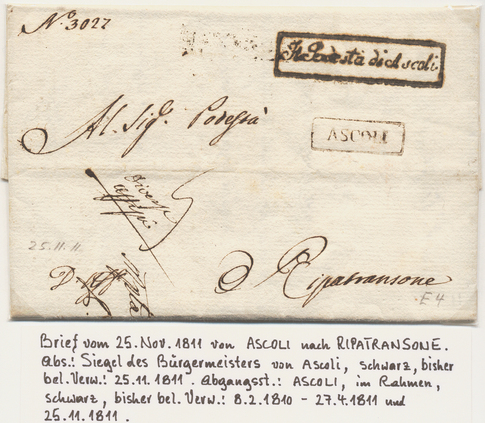 No 3022
Il Podestà di Ascoli
Al Sigr. Podestà
ASCOLI
25.11.11
Ripatransone
E4
Brief vom 25. Nov. 1811 von ASCOLI nach RIPATRANSONE.
Abs.: Siegel des Bürgermeisters von Ascoli, schwarz, bisher
bel. Verw.: 25.11.1811. Abgangsst.: ASCOLI, im Rahmen,
schwarz, bisher bel. Verw.: 8.2.1810 - 27.4.1811 und
25.11.1811.